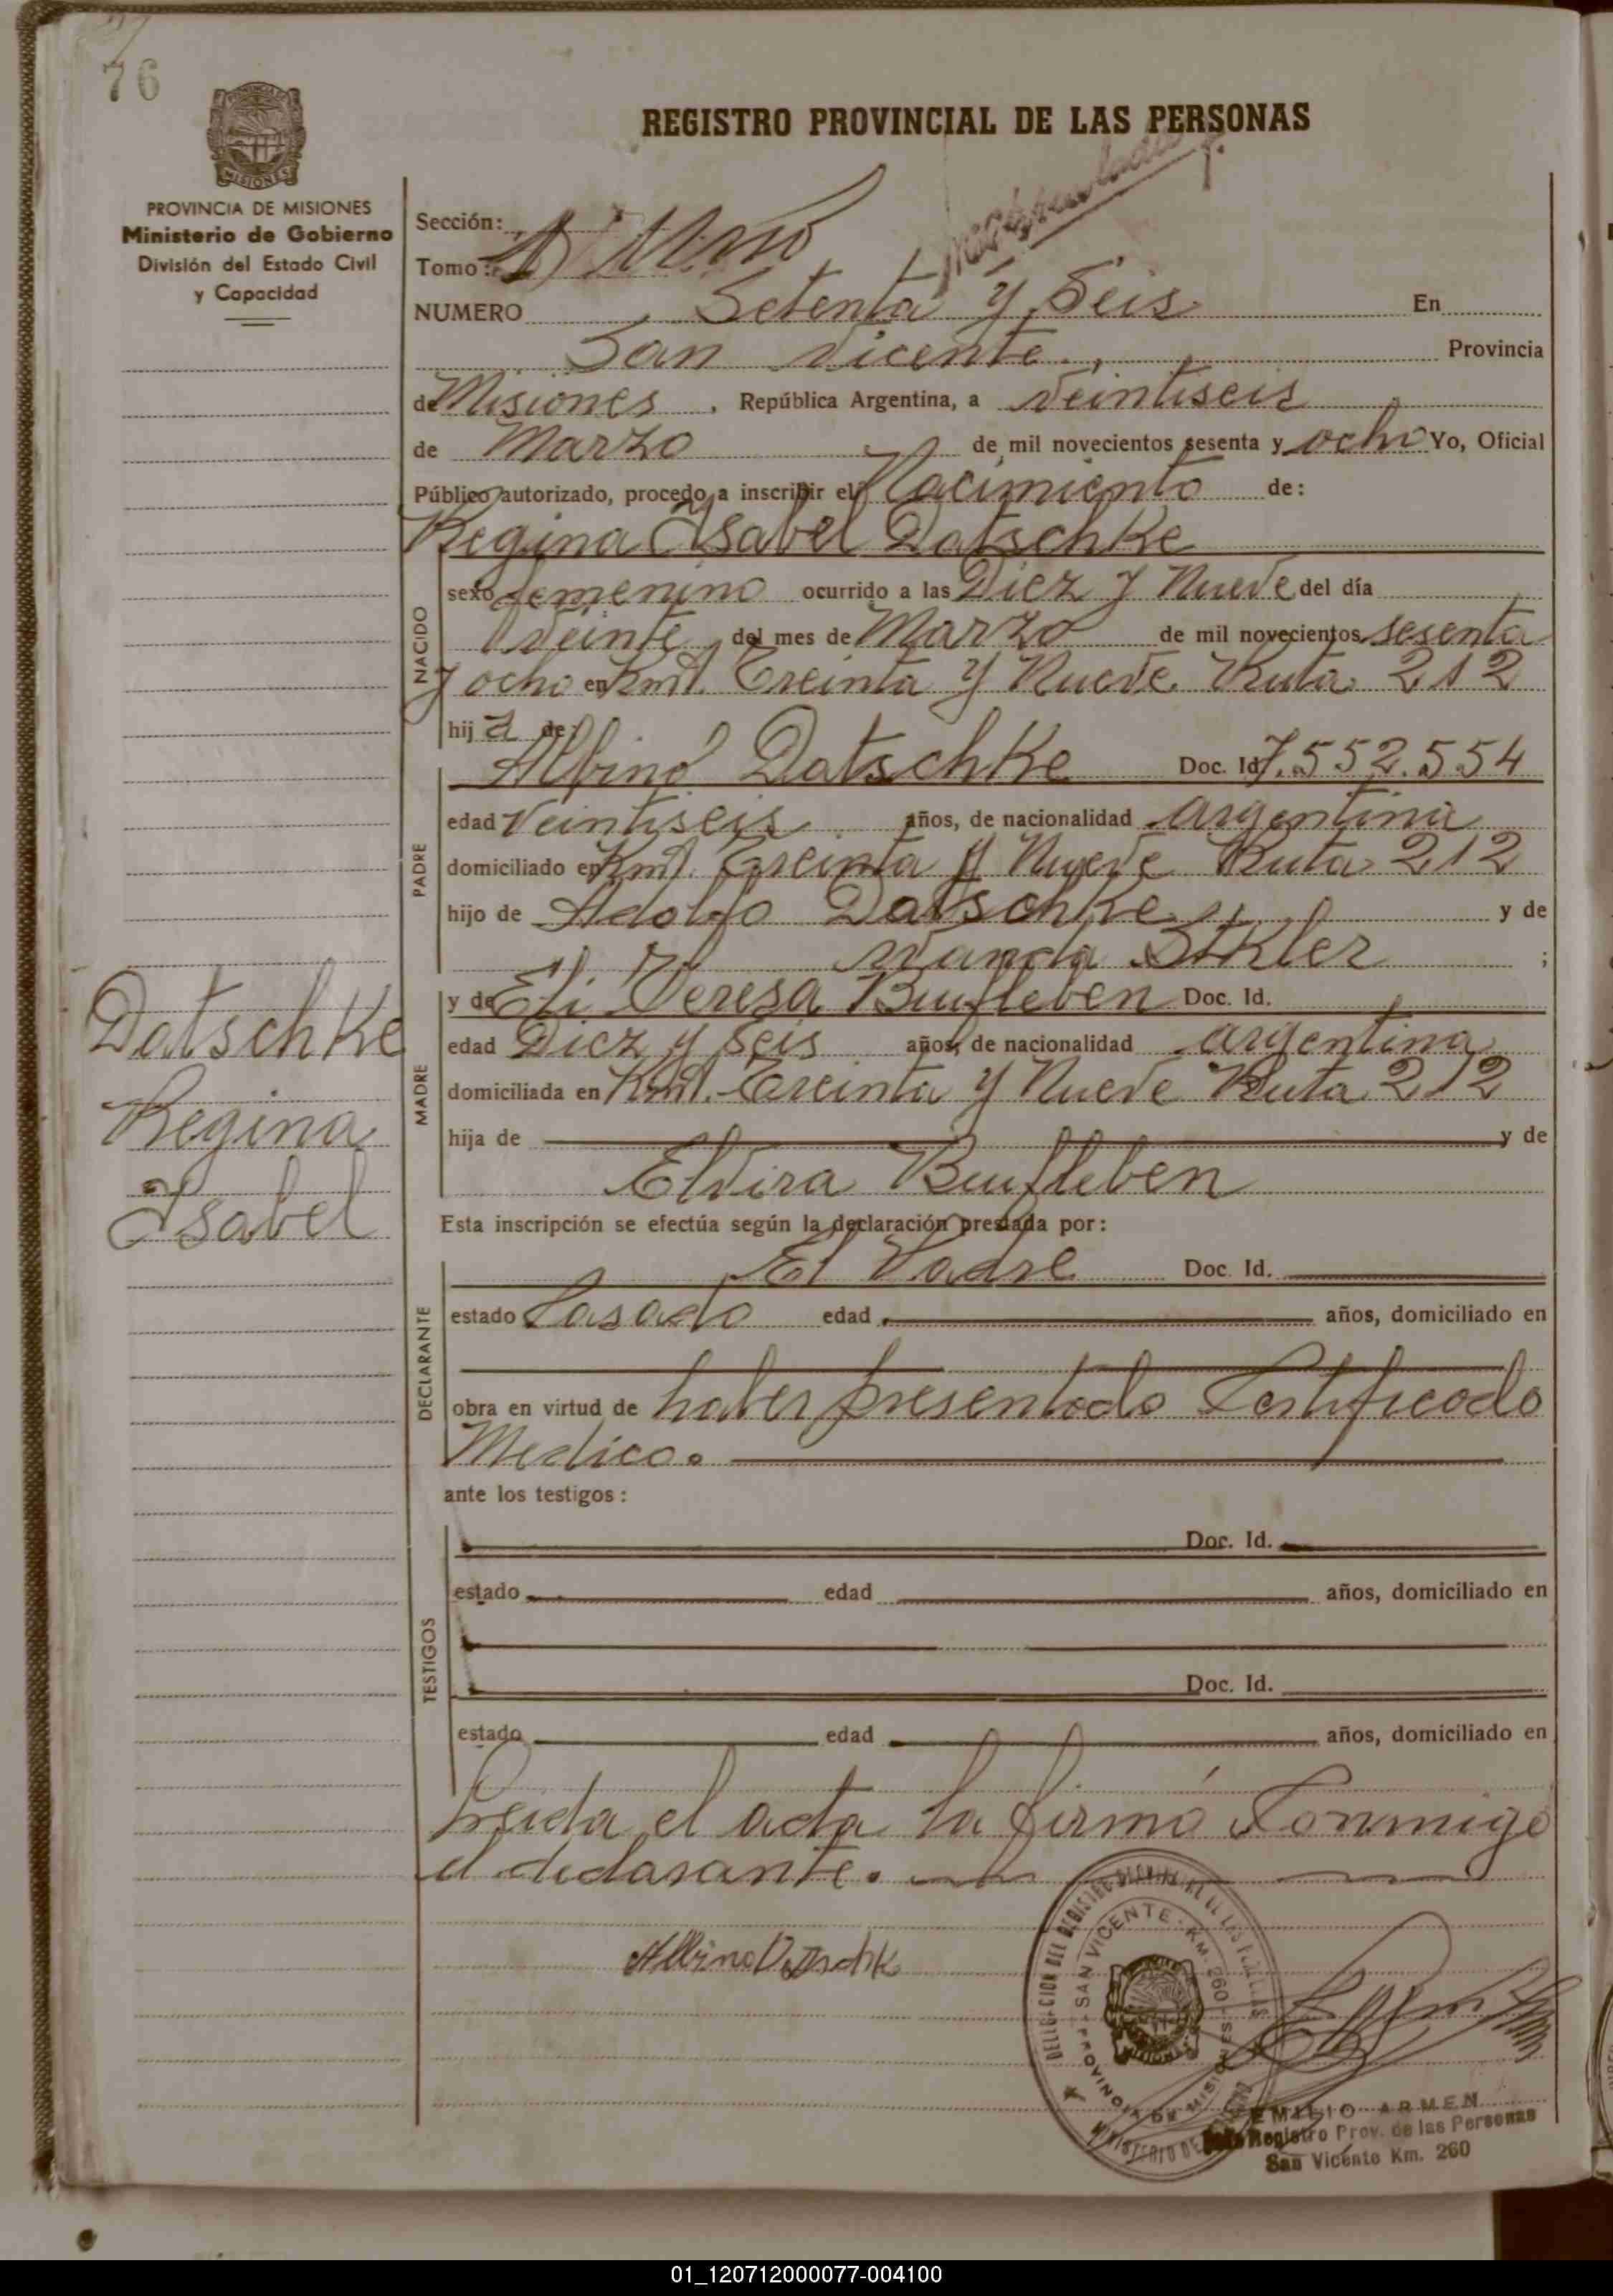 76
REGISTRO PROVINCIAL DE LAS PERSONAS
PROVINCIA DE MISIONES
Ministerio de Gobierno
División del Estado Civil
y Capacidad
Sección:
Tomo:
NUMERO Setenta y Seis En
San Vicente. Provincia
de Misiones, República Argentina, a Veintiseis
de Marzo de mil novecientos sesenta y ocho Yo, Oficial
Público autorizado, procedo a inscribir el Nacimiento de:
Regina Isabel Datschke
NACIDO
sexo femenino ocurrido a las Diez y Nueve del día
Veinte del mes de Marzo de mil novecientos sesenta
y ocho en Kmt. Treinta y Nueve Ruta 212
hija de:
PADRE
Albino Datschke Doc. Id. 7.552.554
edad Veintiseis años, de nacionalidad argentina
domiciliado en Kmt. Treinta y Nueve Ruta 212
hijo de Adolfo Datschke y de
Wanda ;
MADRE
y de Eli Teresa Doc. Id.
edad Diez y Seis años, de nacionalidad argentina
domiciliada en Kmt. Treinta y Nueve Ruta 212
hija de y de
Elvira
Datschke
Regina
Isabel
Esta inscripción se efectúa según la declaración prestada por:
DECLARANTE
El Padre Doc. Id.
estado Casado edad años, domiciliado en
obra en virtud de haber presentado Certificado
Medico.
ante los testigos:
TESTIGOS
Doc. Id.
estado edad años, domiciliado en
Doc. Id.
estado edad años, domiciliado en
Leida el acta la firmó Conmigo
el declarante.
Albino Datschke
DELEGACION DEL REGISTRO PROVINCIAL DE LAS PERSONAS
SAN VICENTE - KM. 260
PROVINCIA DE MISIONES
MINISTERIO DE GOBIERNO
EMILIO ARMEN
Registro Prov. de las Personas
San Vicente Km. 260
01_120712000077-004100